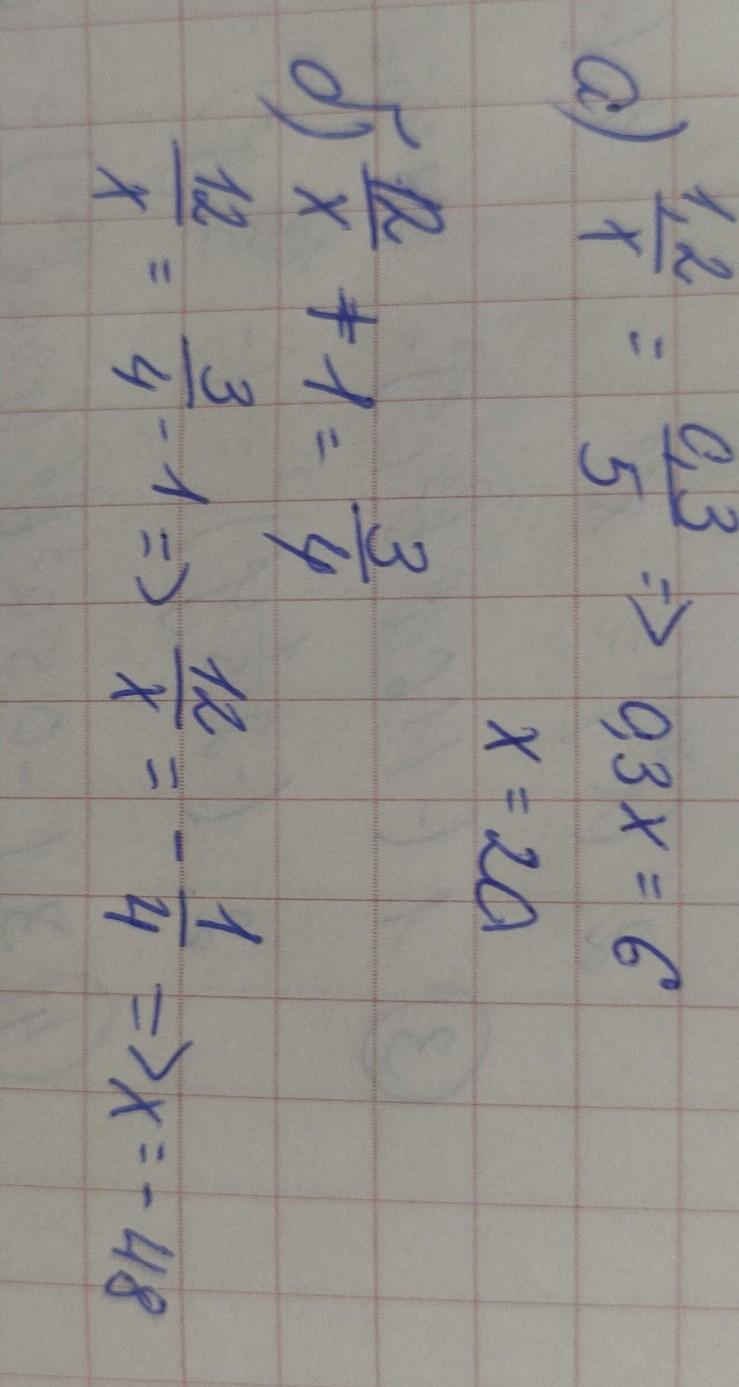 а) 1,2/x = 0,3/5 => 0,3x = 6
x = 20
б) 12/x + 1 = 3/4
12/x = 3/4 - 1 => 12/x = - 1/4 => x = - 48